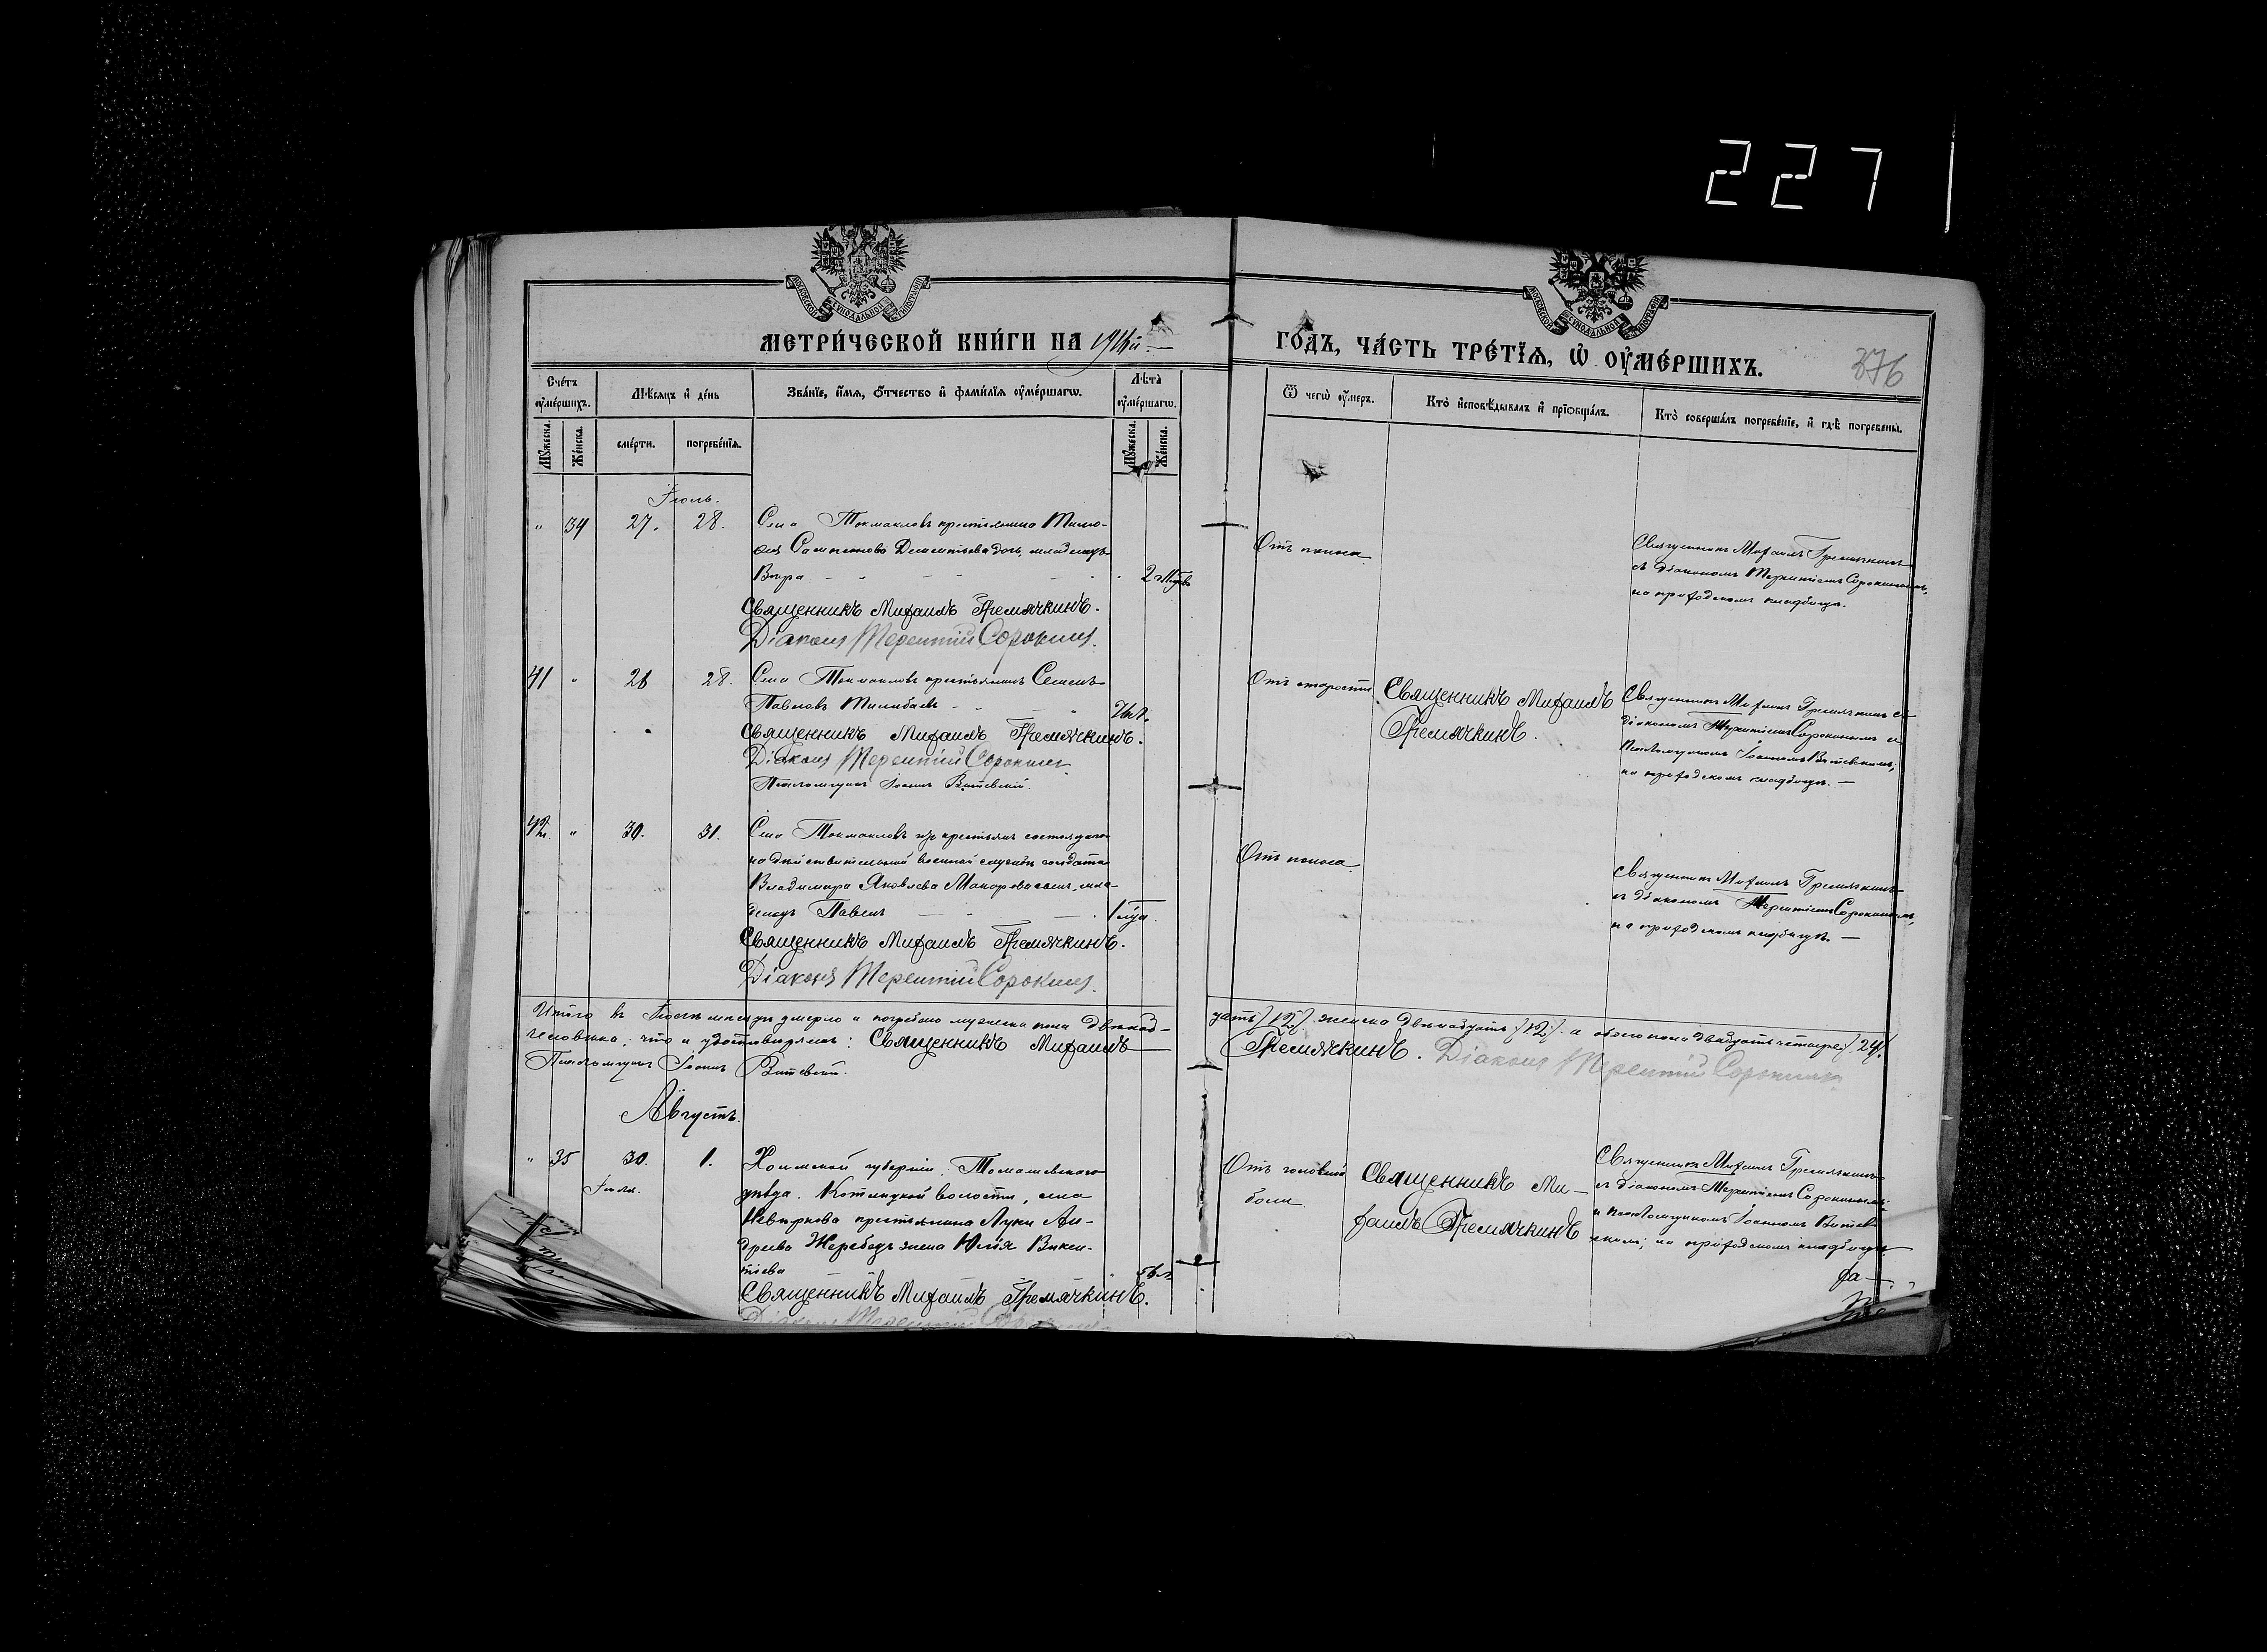 227
МОСКОВСКОЙ СУНОДАЛЬНОЙ ТИПОГРАФІИ
МОСКОВСКОЙ СУНОДАЛЬНОЙ ТИПОГРАФІИ
МЕТРИ́ЧЕСКОЙ КНИ́ГИ НА 191
ГО́ДЪ, ЧА́СТЬ ТРЕ́ТЇѦ, Ѡ҆ ОУ҆МЕ́РШИХЪ.
376
Сче́тъ оу҆ме́ршихъ.
Мѣ́сѧцъ и҆ де́нь
Зва́нїе, и҆́мѧ, ѻ҆́тчество и҆ фамі́лїѧ оу҆ме́ршагѡ.
Лѣ́та оу҆ме́ршагѡ.
Ѿ чегѡ̀ оу҆́меръ.
Кто̀ и҆сповѣ́дывалъ и҆ прїѻбща́лъ.
Кто̀ соверша́лъ погребе́нїе, и҆ гдѣ̀ погребены̀.
Мꙋ́жеска.
Же́нска.
сме́рти.
погребе́нїѧ.
Мꙋ́жеска.
Же́нска.
Іюль.
" 34 27. 28. Села Токмакловъ крестьянина
дочь, младенецъ
Вѣра 2
Священникъ Михаилъ Гремячкинъ.
Діаконъ Терентій Сорокинъ.
Отъ поноса
Священникъ Михаилъ Гремячкинъ
съ діакономъ Терентіемъ Сорокинымъ,
на приходскомъ кладбищѣ.
41 " 26 28. Села Токмакловъ крестьянинъ Семенъ
Павловъ
Священникъ Михаилъ Гремячкинъ.
Діаконъ Терентій Сорокинъ
Псаломщикъ Іоаннъ Витевскій.
Отъ старости
Священникъ Михаилъ
Гремячкинъ.
Священникъ Михаилъ Гремячкинъ съ
діакономъ Терентіемъ Сорокинымъ и
псаломщикомъ Іоанномъ Витевскимъ,
на приходскомъ кладбищѣ. —
42. " 30. 31. Села Токмакловъ изъ крестьянъ состоящаго
на дѣйствительной военной службѣ солдата
Владимира Яковлева Макарова сынъ, мла-
денецъ Павелъ 1 года.
Священникъ Михаилъ Гремячкинъ.
Діаконъ Терентій Сорокинъ.
Отъ поноса
Священникъ Михаилъ Гремячкинъ
съ діакономъ Терентіемъ Сорокинымъ,
на приходскомъ кладбищѣ. —
Итого въ Іюлѣ мѣсяцѣ умерло и погребено мужеска пола двѣнад-
цать /12/. женска двѣнадцать /12/. а обоего пола двадцать четыре /24/.
человѣка; что и удостовѣряемъ: Священникъ Михаилъ
Гремячкинъ. Діаконъ Терентій Сорокинъ
Псаломщикъ Іоаннъ Витевскій.
Августъ.
" 35 30. 1. Холмской губерніи, Томашевскаго
Іюля. уѣзда. Котлицкой волости, села
крестьянина Луки Ан-
дреева Жеребецъ жена Юлія Викен-
тіева
Священникъ Михаилъ Гремячкинъ.
Діаконъ Терентій
Отъ головной
боли.
Священникъ Ми-
хаилъ Гремячкинъ
Священникъ Михаилъ Гремячкинъ
съ діакономъ Терентіемъ Сорокинымъ
и псаломщикомъ Іоанномъ Витев-
скимъ; на приходскомъ кладбищѣ